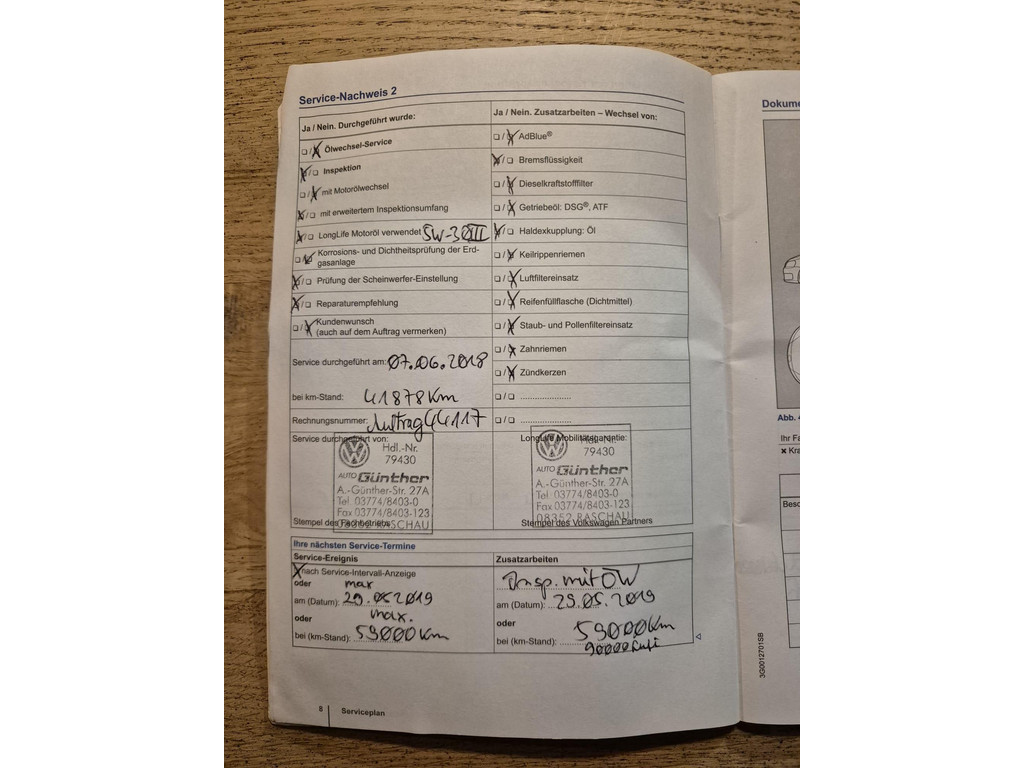 Service-Nachweis 2
Ja / Nein. Durchgeführt wurde:
Ja / Nein. Zusatzarbeiten – Wechsel von:
Ölwechsel-Service
Inspektion
mit Motorölwechsel
mit erweitertem Inspektionsumfang
LongLife Motoröl verwendet 5W-30 III
Korrosions- und Dichtheitsprüfung der Erd-
gasanlage
Prüfung der Scheinwerfer-Einstellung
Reparaturempfehlung
Kundenwunsch
(auch auf dem Auftrag vermerken)
Service durchgeführt am: 07.06.2018
bei km-Stand: 41878 Km
Rechnungsnummer: Auftrag 44117
AdBlue®
Bremsflüssigkeit
Dieselkraftstofffilter
Getriebeöl: DSG®, ATF
Haldexkupplung: Öl
Keilrippenriemen
Luftfiltereinsatz
Reifenfüllflasche (Dichtmittel)
Staub- und Pollenfiltereinsatz
Zahnriemen
Zündkerzen
Service durchgeführt von:
Hdl.-Nr.
79430
AUTO Günther
A.-Günther-Str. 27A
Tel. 03774/8403-0
Fax 03774/8403-123
08352 RASCHAU
Stempel des Fachbetriebs
LongLife Mobilitätsgarantie:
Hdl.-Nr.
79430
AUTO Günther
A.-Günther-Str. 27A
Tel. 03774/8403-0
Fax 03774/8403-123
08352 RASCHAU
Stempel des Volkswagen Partners
Ihre nächsten Service-Termine
Service-Ereignis
nach Service-Intervall-Anzeige
oder max
am (Datum): 29.05.2019
oder max.
bei (km-Stand): 59000 Km
Zusatzarbeiten
Insp. mit ÖW
am (Datum): 29.05.2019
oder
bei (km-Stand): 59000 Km
90000 Lufi
8
Serviceplan
3G0012701SB
Dokume
Abb. 4
Ihr Fa
Kra
Besc